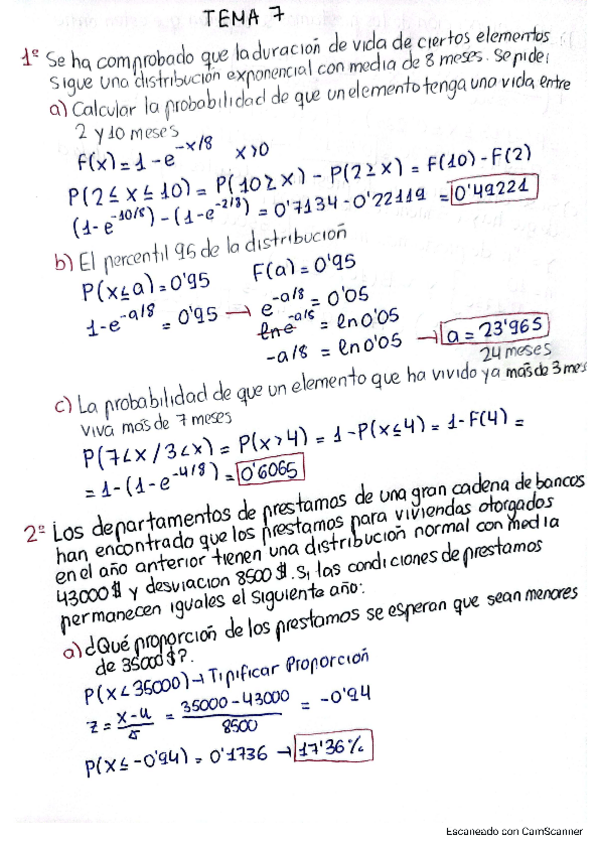 TEMA 7
1º Se ha comprobado que la duración de vida de ciertos elementos
sigue una distribución exponencial con media de 8 meses. Se pide:
a) Calcular la probabilidad de que un elemento tenga una vida entre
2 y 10 meses
F(x) = 1 - e^-x/8   x>0
P(2 ≤ x ≤ 10) = P(10 ≥ x) - P(2 ≥ x) = F(10) - F(2)
(1-e^-10/8) - (1-e^-2/8) = 0'7134 - 0'22119 = 0'49221
b) El percentil 95 de la distribución
P(x ≤ a) = 0'95   F(a) = 0'95
1-e^-a/8 = 0'95 → e^-a/8 = 0'05
ln e^-a/8 = ln 0'05
-a/8 = ln 0'05 → a = 23'965
24 meses
c) La probabilidad de que un elemento que ha vivido ya más de 3 mes
viva más de 7 meses
P(7<x / 3<x) = P(x>4) = 1-P(x≤4) = 1-F(4) =
= 1-(1-e^-4/8) = 0'6065
2º Los departamentos de prestamos de una gran cadena de bancos
han encontrado que los prestamos para viviendas otorgados
en el año anterior tienen una distribución normal con media
43000$ y desviacion 8500$. Si las condiciones de prestamos
permanecen iguales el siguiente año:
a) ¿Qué proporción de los prestamos se esperan que sean menores
de 35000$?
P(x < 35000) → Tipificar Proporción
z = x-u/σ = 35000-43000/8500 = -0'94
P(x ≤ -0'94) = 0'1736 → 17'36%
Escaneado con CamScanner